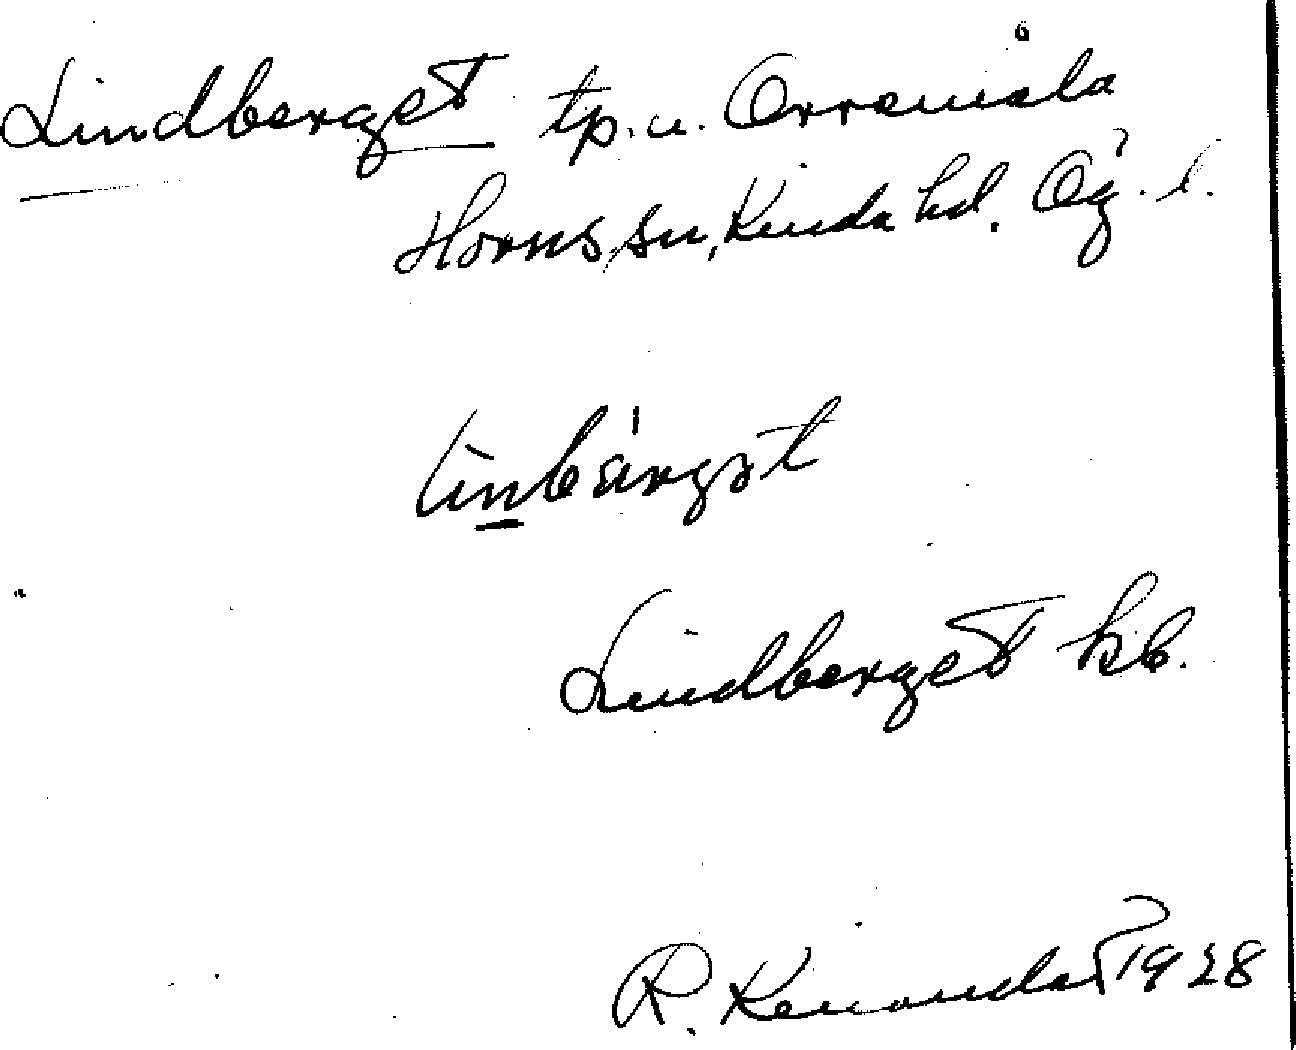 Lindberget tp. u. Orremåla
Horns sn, Kinda hd. Ög. l.
linbärgət
Lindberget kb.
R. Kenondal 1928